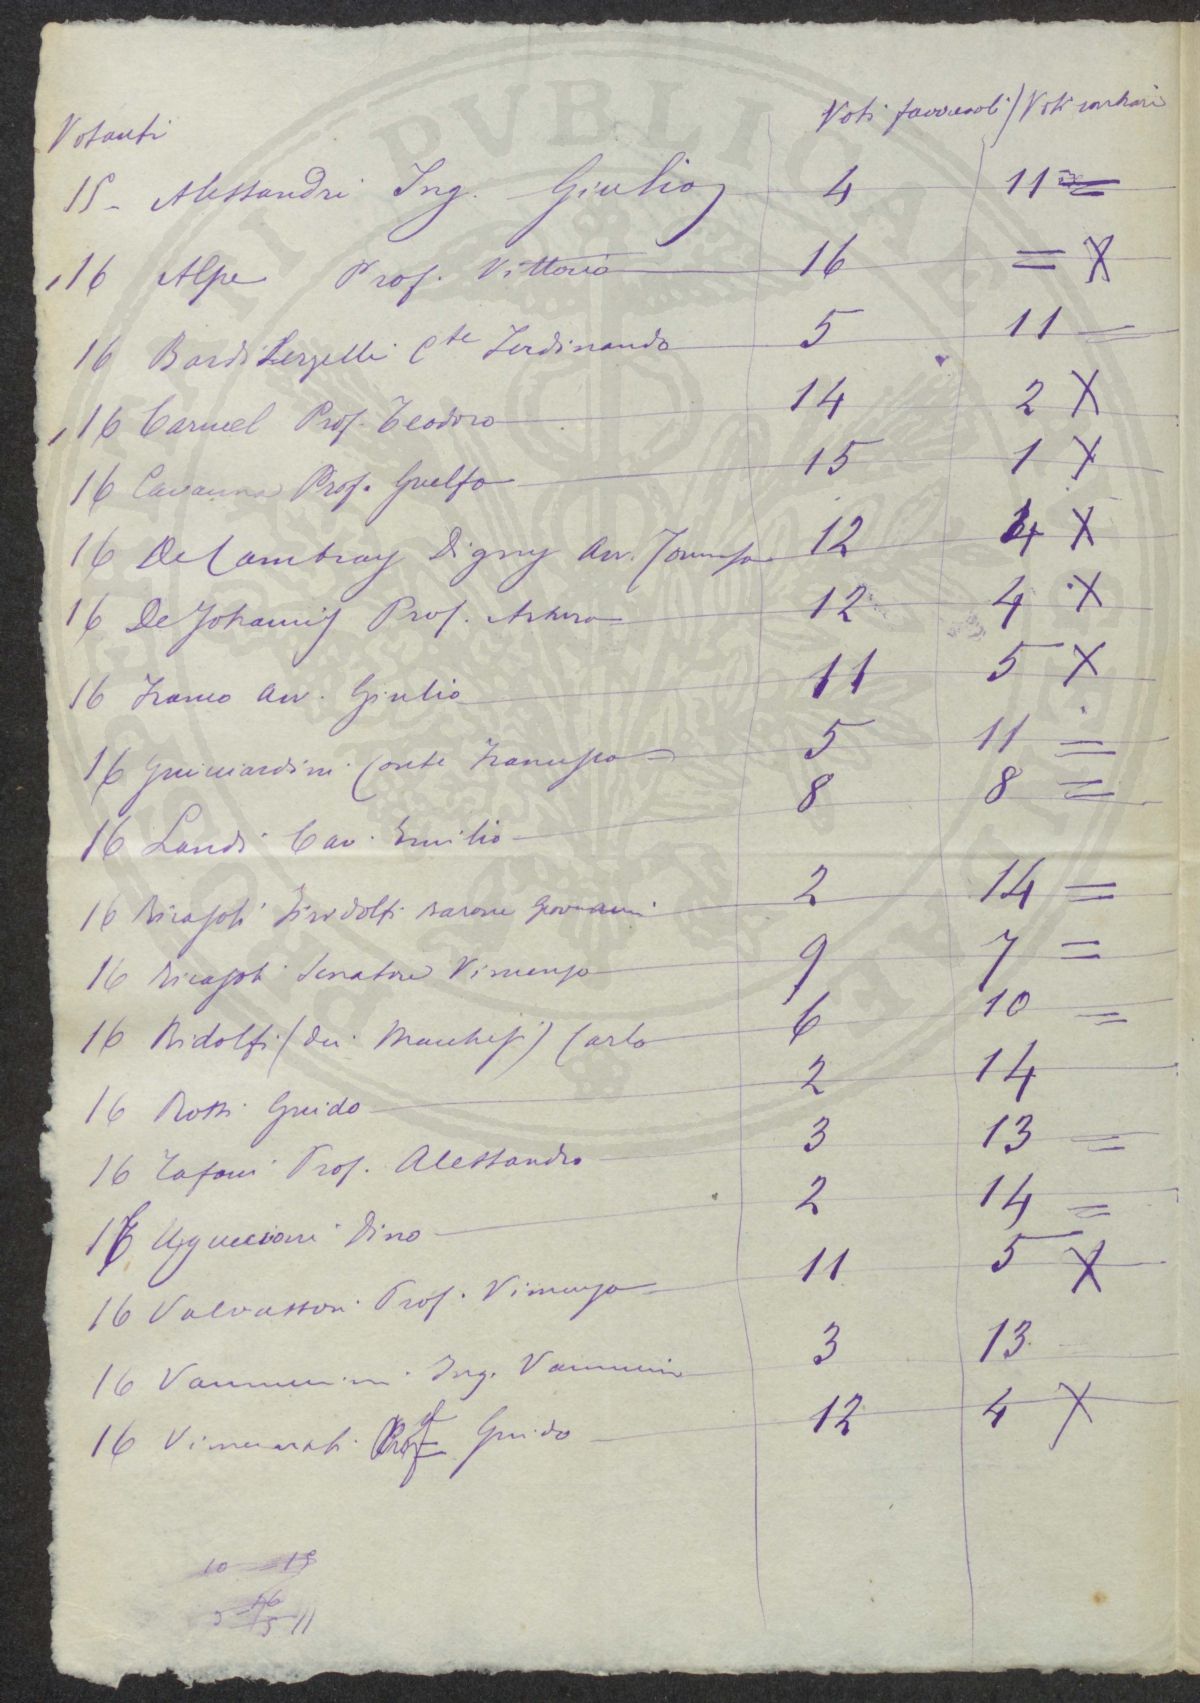 Votanti Voti favorevoli / Voti contrari
15 - Alessandri Ing. Giulio 4 11 =
16 Alpe Prof. Vittorio 16 = X
16 Bardi Serzelli Cte Ferdinando 5 11 =
16 Caruel Prof. Teodoro 14 2 X
16 Cavanna Prof. Guelfo 15 1 X
16 De Cambray Digny Avv. Tommaso 12 4 X
16 De Johannis Prof. Arturo 12 4 X
16 Franco Avv. Giulio 11 5 X
16 Guicciardini Conte Francesco 5 11 =
16 Landi Cav. Emilio 8 8 =
16 Ricasoli Firidolfi Barone Giovanni 2 14 =
16 Ricasoli Senatore Vincenzo 9 7 =
16 Ridolfi (dei Marchesi) Carlo 6 10 =
16 Rossi Guido 2 14
16 Tafani Prof. Alessandro 3 13 =
16 Uguccioni Dino 2 14 =
16 Valvassori Prof. Vincenzo 11 5 X
16 Vannuccini Ing. Vannuccio 3 13
16 Vimercati Guido 12 4 X
10 15
16
5 5 11
PVBLICAE